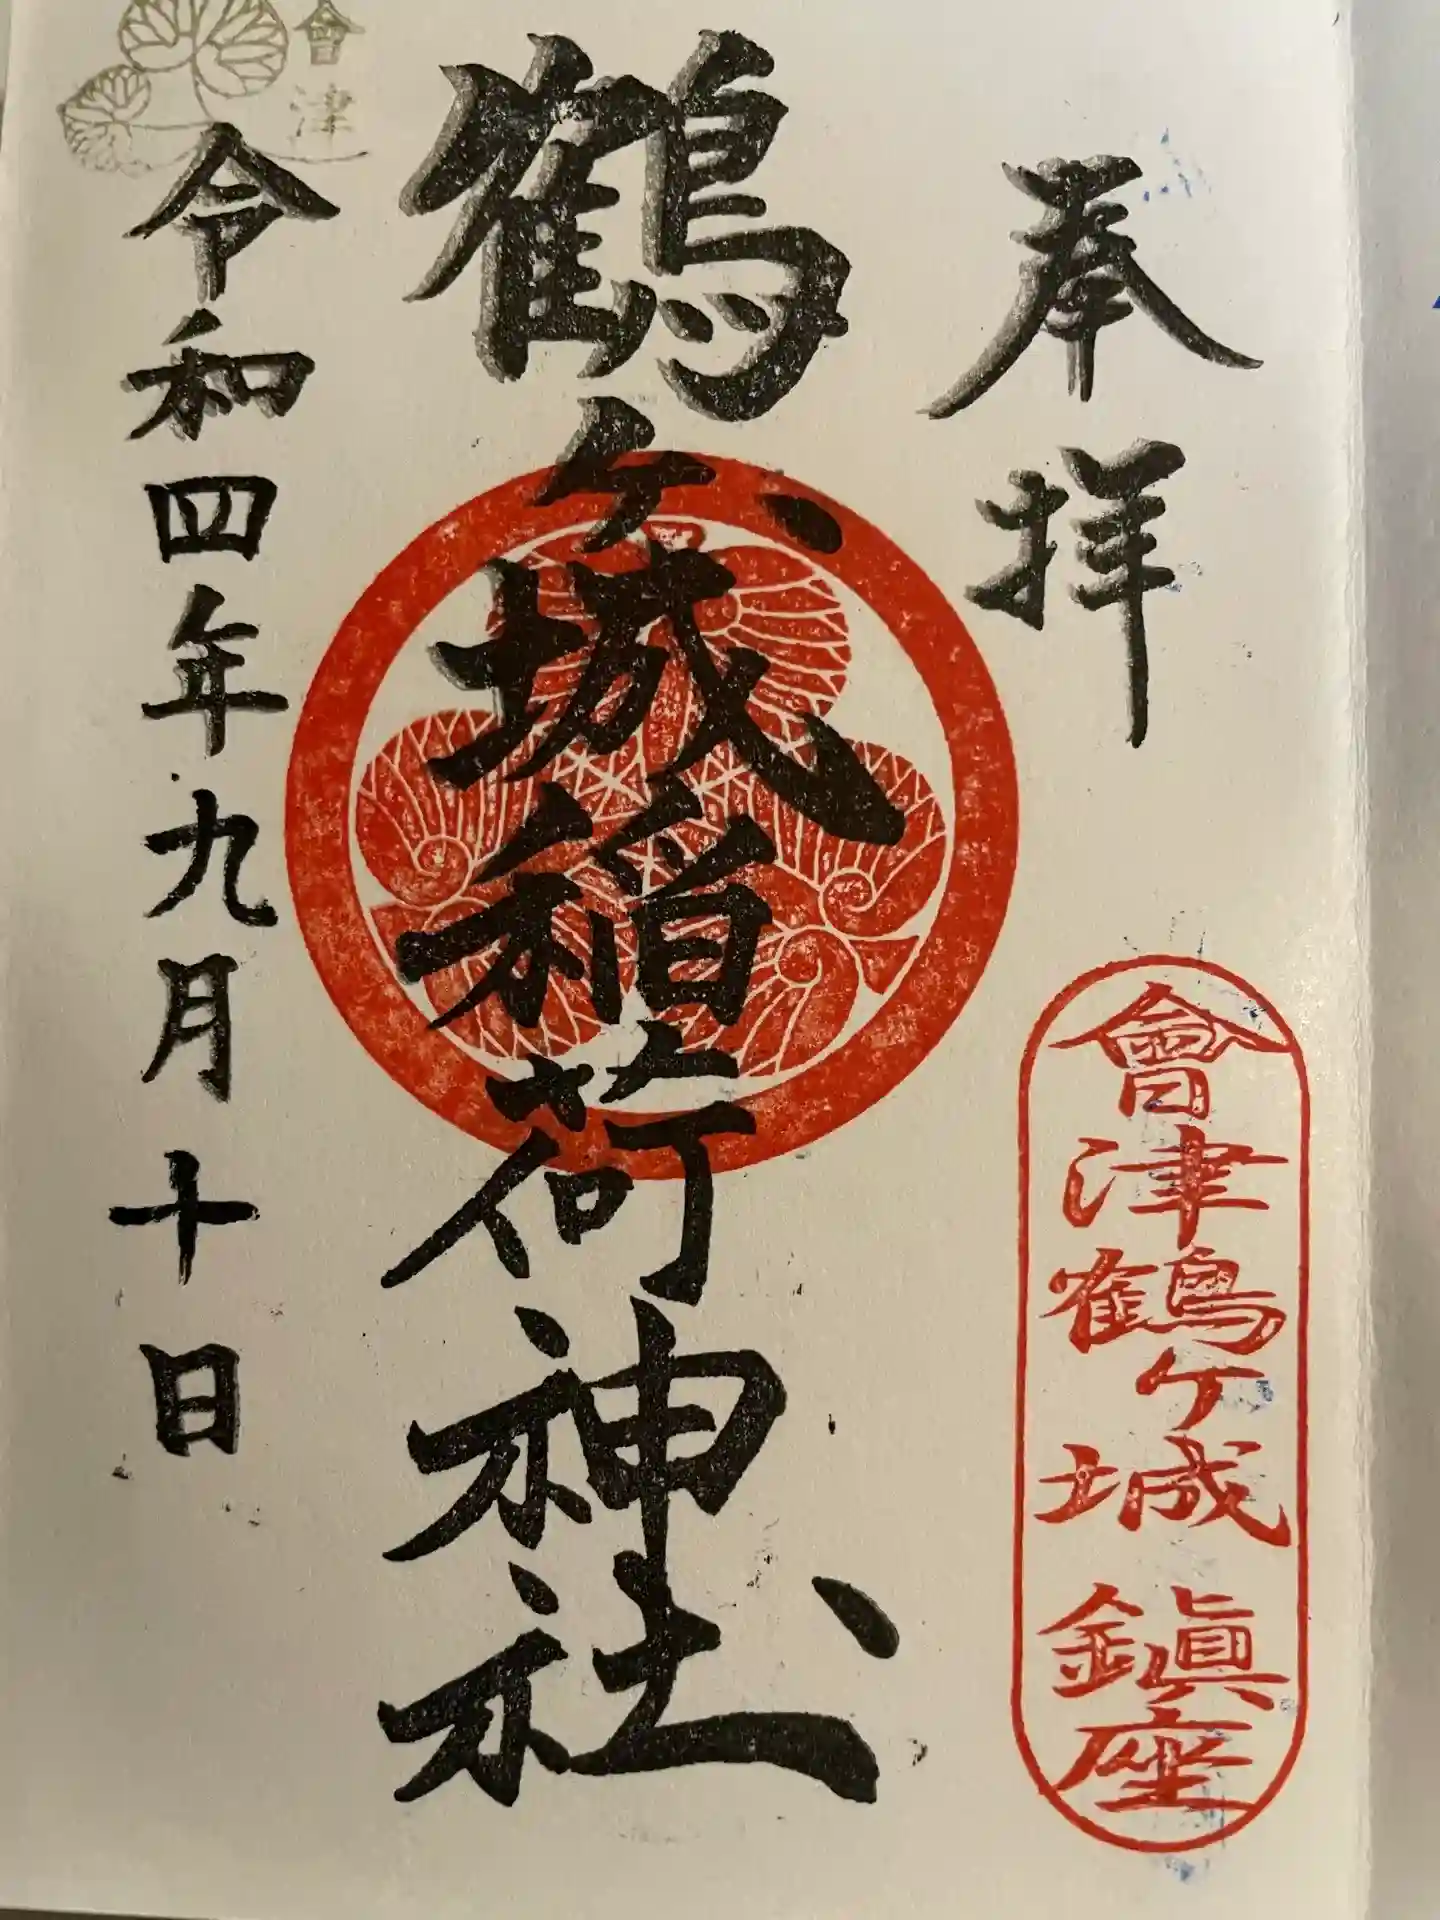 奉拝
會津鶴ケ城鎮座
鶴ケ城稲荷神社
會津
令和四年九月十日